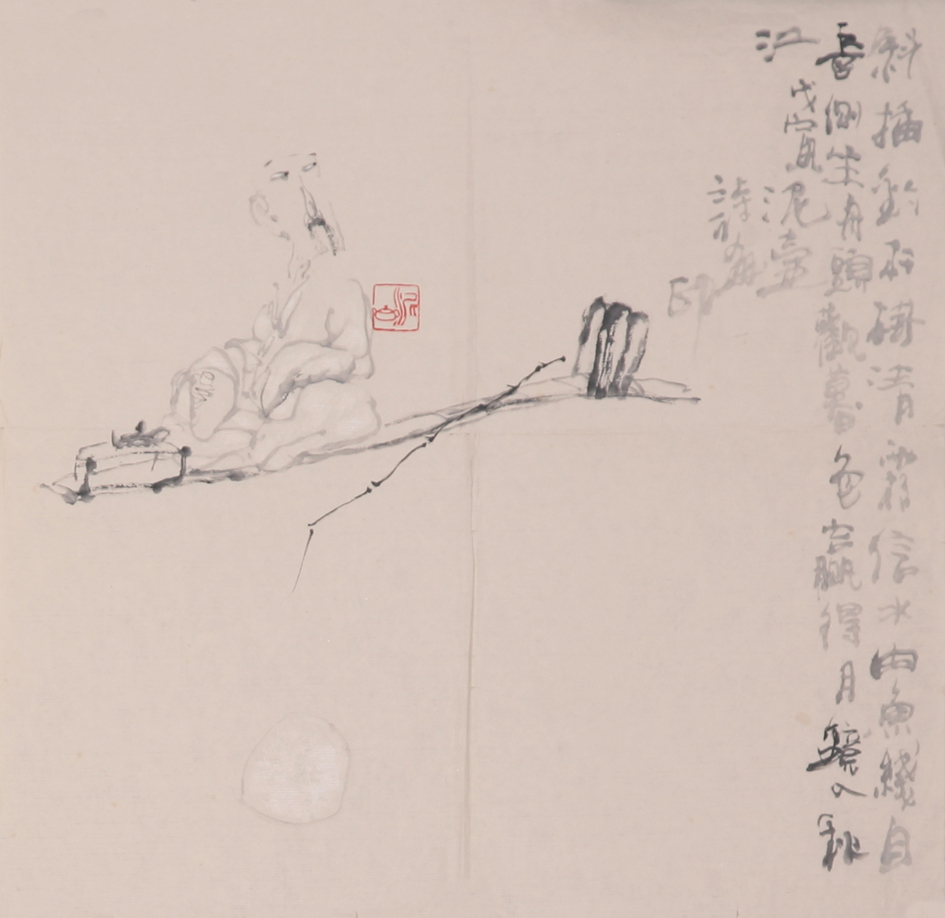 斜插釣竿掛清霜信水由魚綫自
長側坐舟頭觀暮色贏得月鏡入秋
江
戊寅
泥壺
詩
印
泥